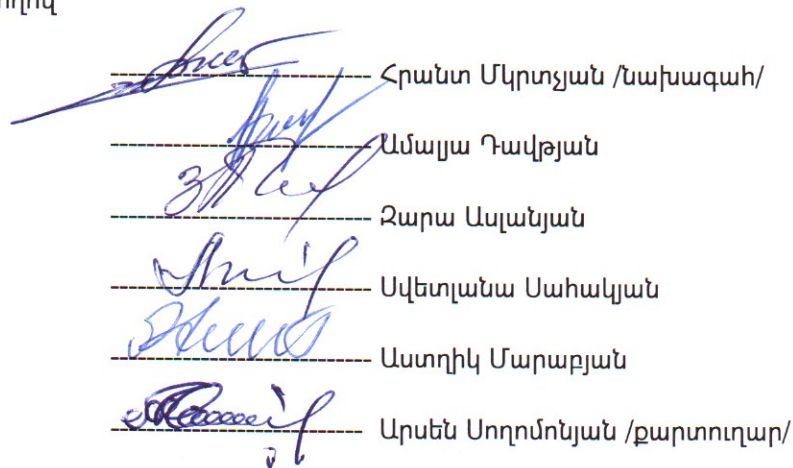 Հրանտ Մկրտչյան /նախագահ/
Ամալյա Դավթյան
Զարա Ասլանյան
Սվետլանա Սահակյան
Աստղիկ Մարաբյան
Արսեն Սողոմոնյան /քարտուղար/